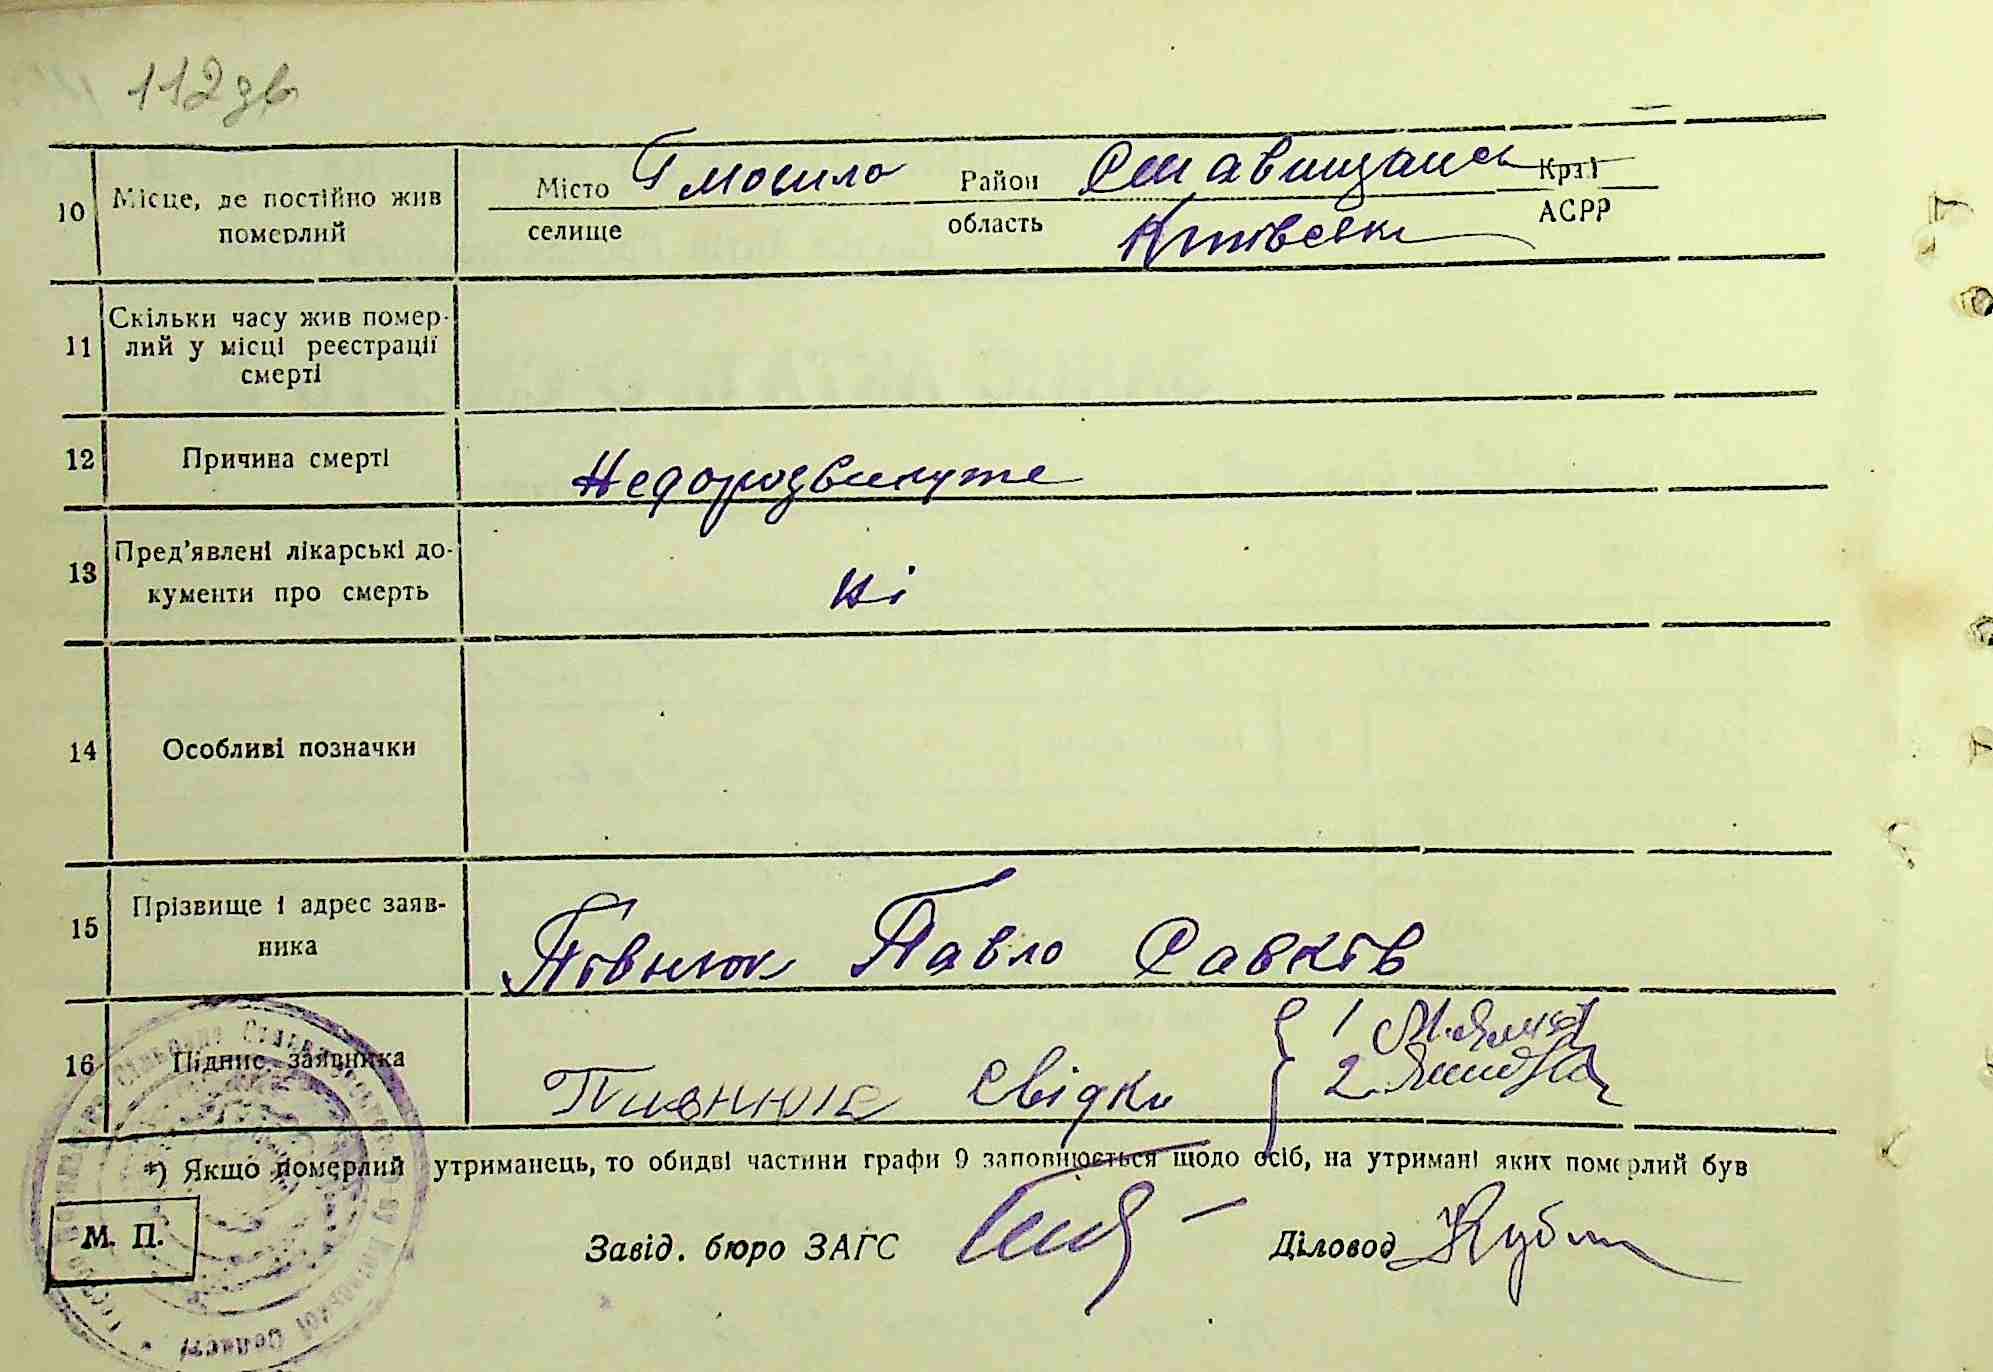 112 зв
10 Місце, де постійно жив померлий
Місто Гмогила Район Ставищансь Краї
селище область Київськ АСРР
11 Скільки часу жив помер-
лий у місці реєстрації
смерті
12 Причина смерті Недорозвинуте
13 Пред'явлені лікарські до-
кументи про смерть Ні
14 Особливі позначки
15 Прізвище і адрес заяв-
ника Півнюк Павло Савков
16 Підпис заявника Пивнюк Свідки { 1 2
*) Якщо померлий утриманець, то обидві частини графи 9 заповнюється щодо осіб, на утримані яких померлий був
М. П. Завід. бюро ЗАГС Діловод